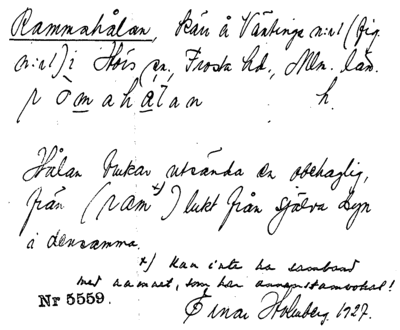 Rammahålan, kärr å Väntinge n:r 1 (fig.
n:r 1) i Hörs sn, Frosta hd., Mlm. län.
ròmahålan h.
Hålan brukar utsända en obehaglig,
från (ram x)) lukt från själva dyn
i densamma.
x) Kan inte ha samband
med namnet, som har annan stamvokal!
Nr 5559. Einar Holmberg. 1927.